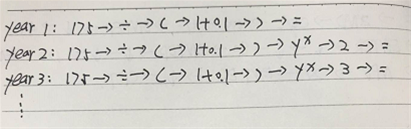 year 1: 175→÷→(→1+0.1→)→=
year 2: 175→÷→(→1+0.1→)→yˣ→2→=
year 3: 175→÷→(→1+0.1→)→yˣ→3→=
⋮